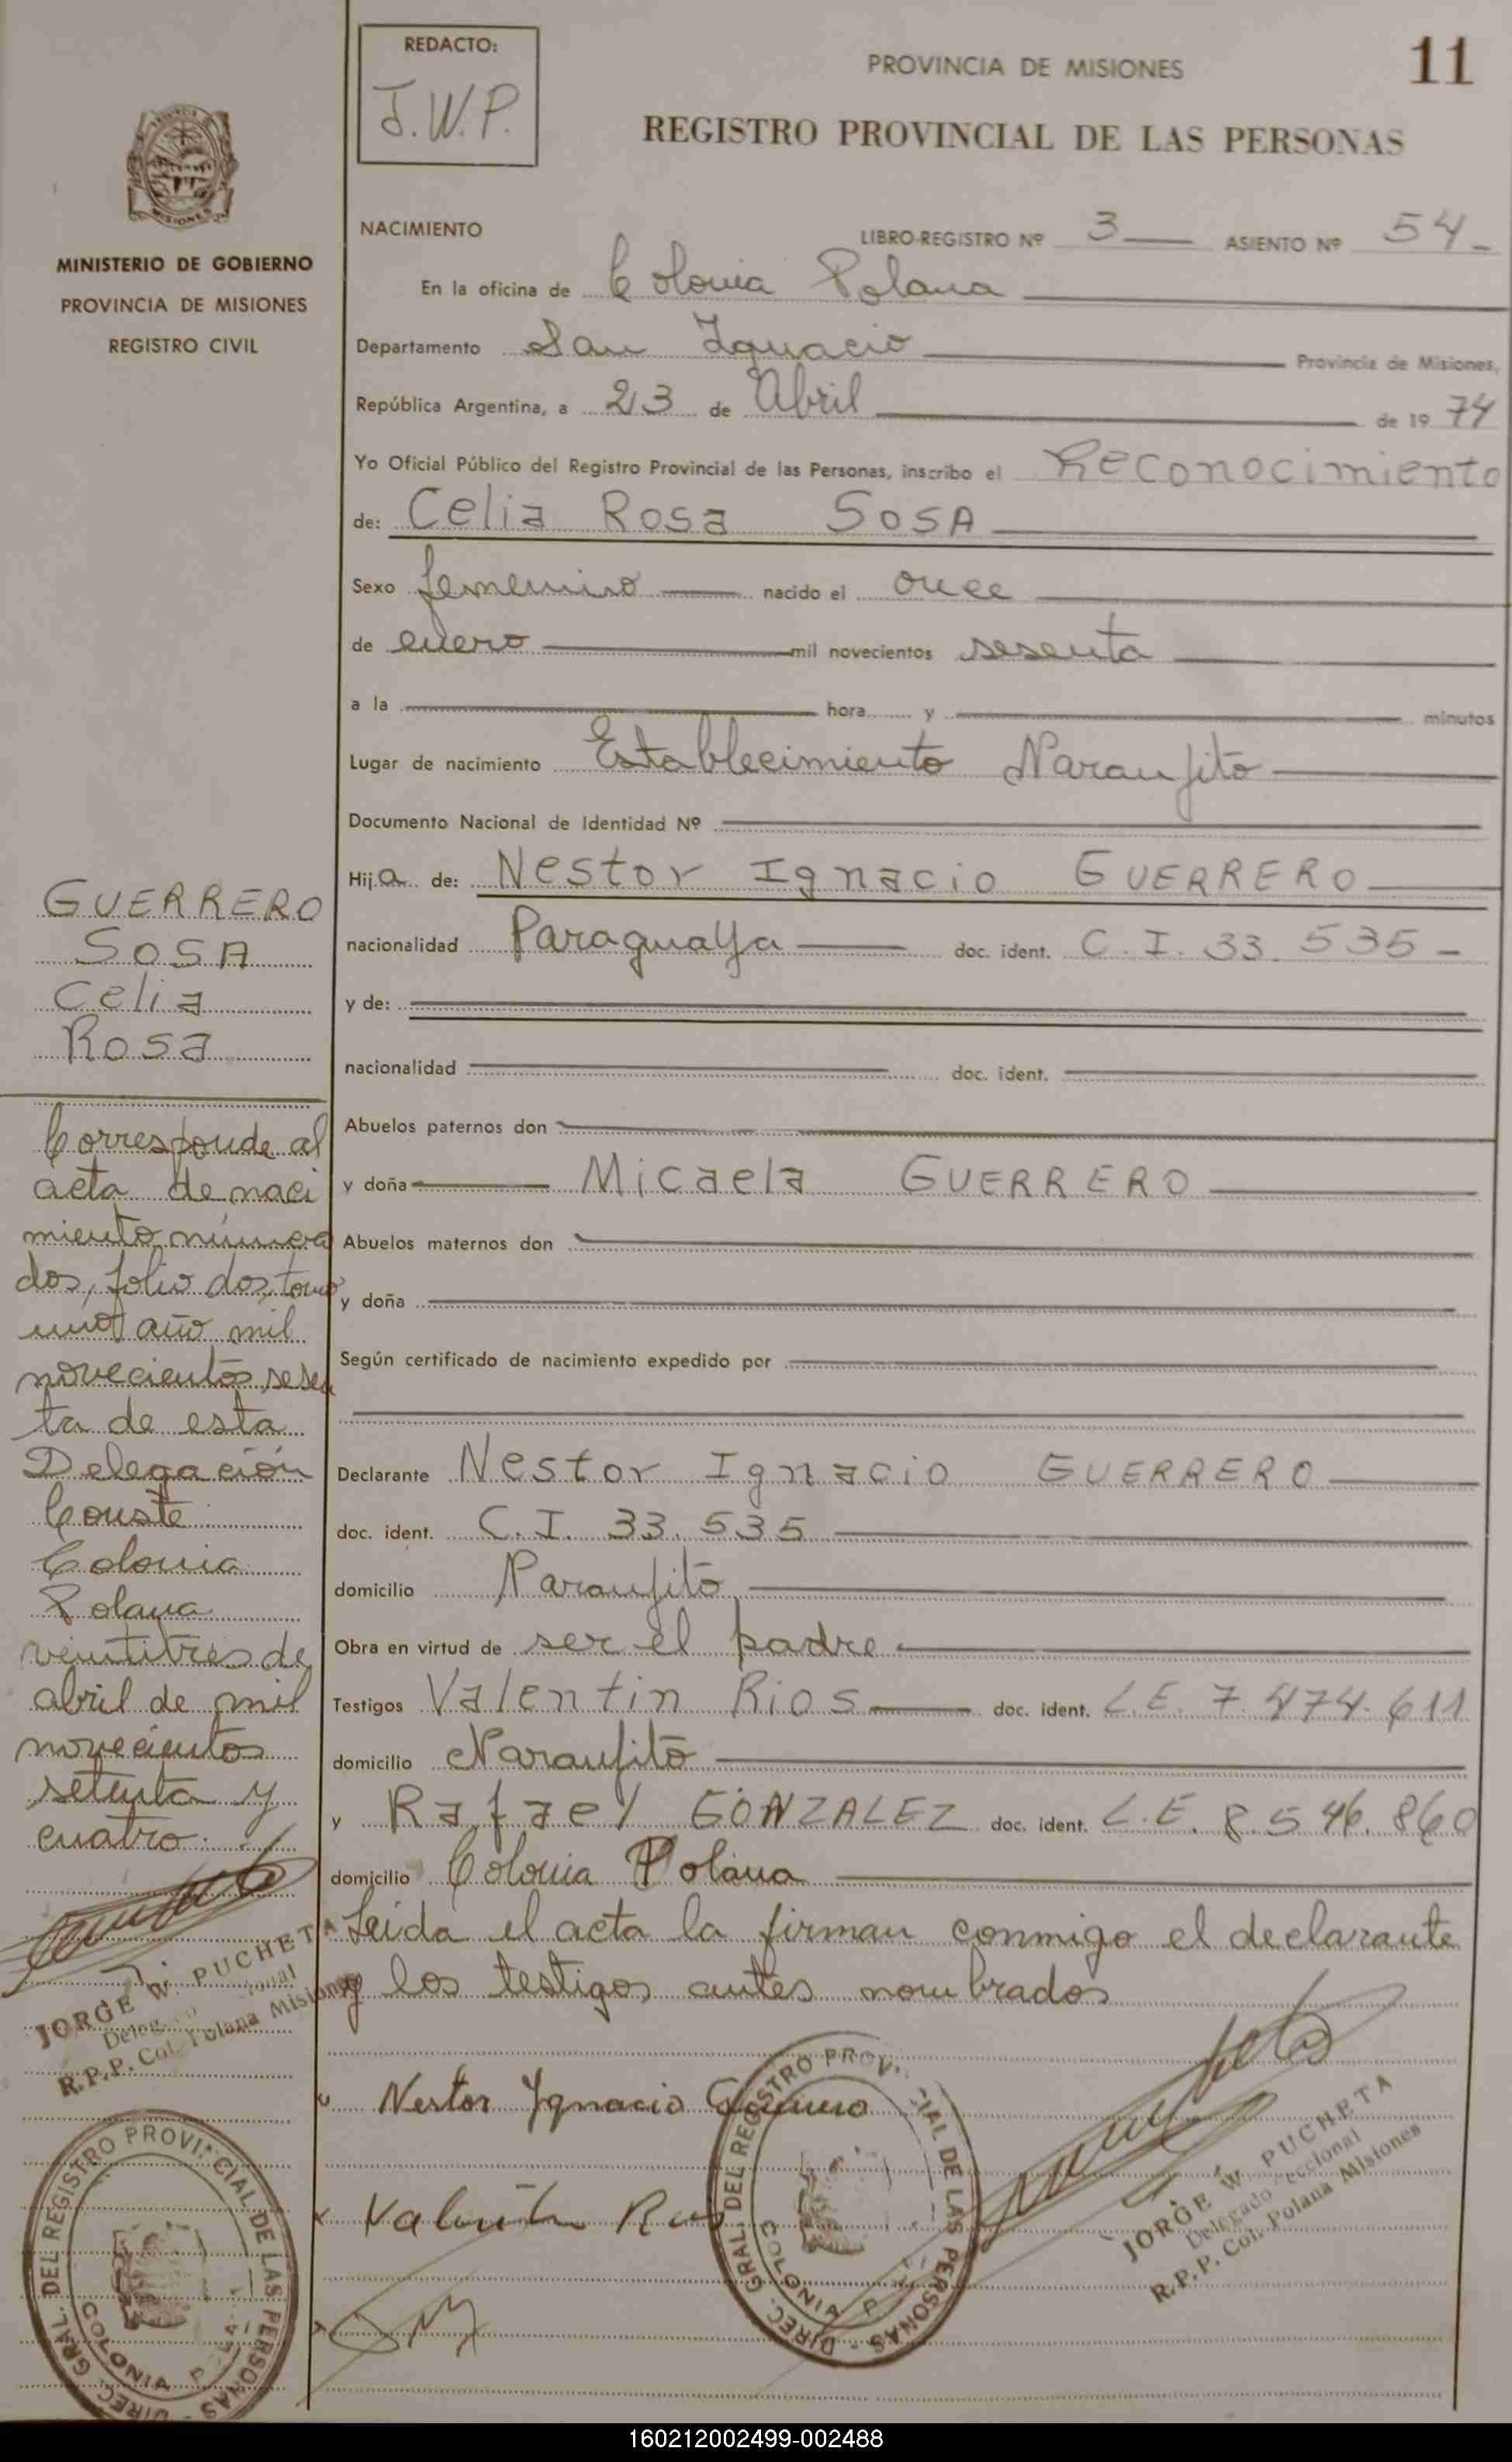 REDACTO:
J.W.P.
PROVINCIA DE MISIONES
11
REGISTRO PROVINCIAL DE LAS PERSONAS
MISIONES
MINISTERIO DE GOBIERNO
PROVINCIA DE MISIONES
REGISTRO CIVIL
NACIMIENTO
LIBRO-REGISTRO Nº 3 ASIENTO Nº 54-
En la oficina de Colonia Polana
Departamento San Ignacio Provincia de Misiones,
República Argentina, a 23 de Abril de 19 74
Yo Oficial Público del Registro Provincial de las Personas, inscribo el Reconocimiento
de: Celia Rosa SOSA
Sexo femenino nacido el once
de enero mil novecientos sesenta
a la hora y minutos
Lugar de nacimiento Establecimiento Naranjito
Documento Nacional de Identidad Nº
Hija de: Nestor Ignacio GUERRERO
nacionalidad Paraguaya doc. ident. C.I. 33.535-
y de:
nacionalidad doc. ident.
Abuelos paternos don
y doña Micaela GUERRERO
Abuelos maternos don
y doña
Según certificado de nacimiento expedido por
Declarante Nestor Ignacio GUERRERO
doc. ident. C.I. 33.535
domicilio Naranjito
Obra en virtud de ser el padre
Testigos Valentin Rios doc. ident. L.E. 7.474.611
domicilio Naranjito
y Rafael GONZALEZ doc. ident. L.E. 8.546.860
domicilio Colonia Polana
Leída el acta la firman conmigo el declarante
y los testigos antes nombrados
Nestor Ygnacio Guerrero
Valentin Rios
DIREC. GRAL. DEL REGISTRO PROVINCIAL DE LAS PERSONAS
COLONIA
JORGE W. PUCHETA
Delegado Seccional
R.P.P. Col. Polana Misiones
GUERRERO
SOSA
Celia
Rosa
Corresponde al
acta de naci
miento número
dos, folio dos, tomo
uno, año mil
novecientos sesen
ta de esta
Delegación
Conste
Colonia
Polana
veintitres de
abril de mil
novecientos
setenta y
cuatro.
J. 
JORGE W. PUCHETA
R.P.P. Col. Polana Misiones
DIREC. GRAL. DEL REGISTRO PROVINCIAL DE LAS PERSONAS
COLONIA
160212002499-002488